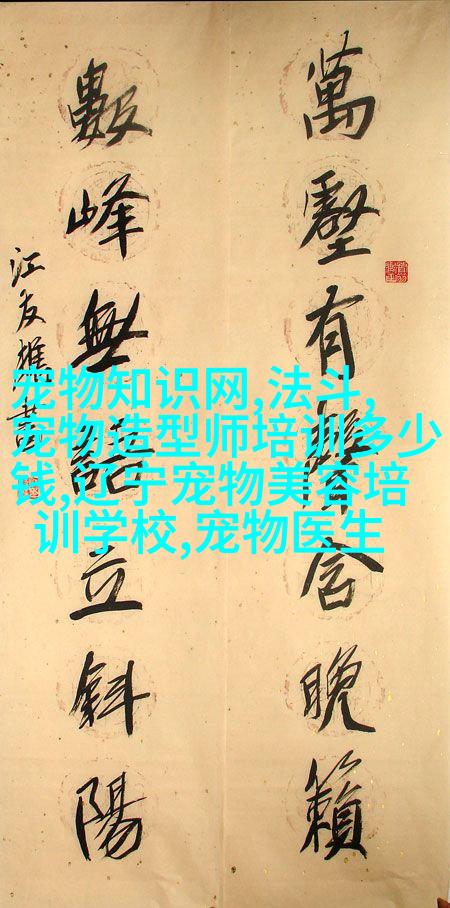 萬壑有聲含晚籟
數峰無語立斜陽
江友樵書
宠物知识网,法斗,
宠物造型师培训多少
钱,辽宁宠物美容培
训学校,宠物医生